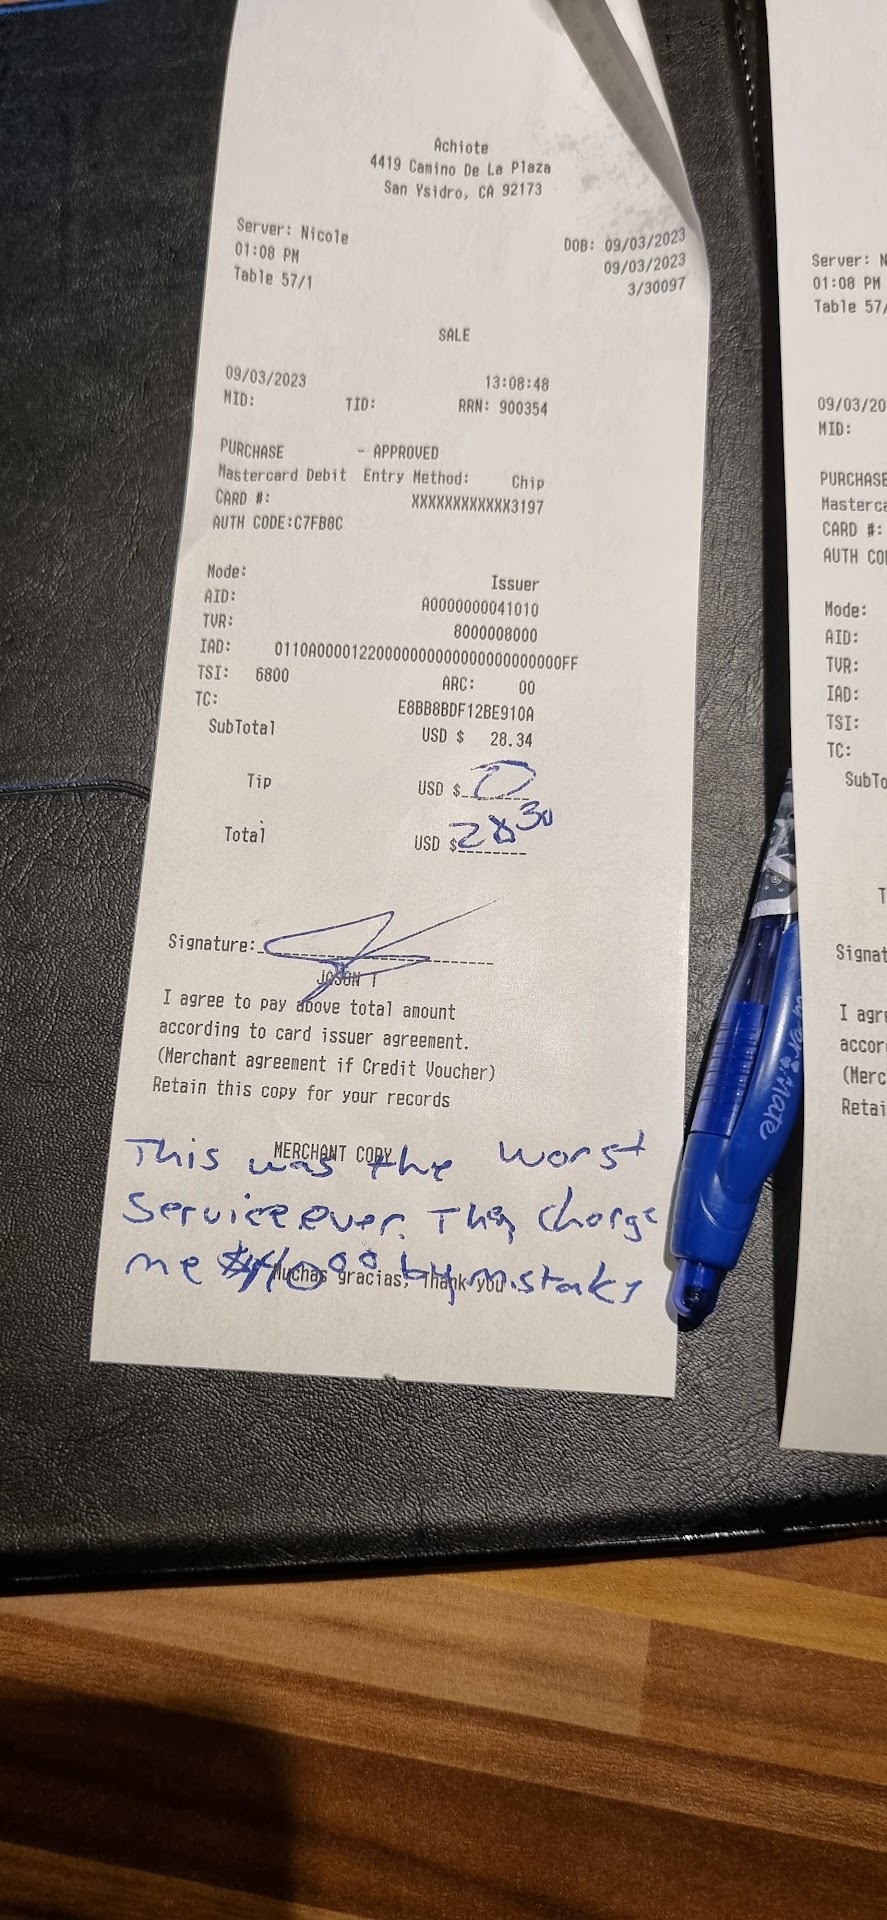 Achiote
4419 Camino De La Plaza
San Ysidro, CA 92173
Server: Nicole DOB: 09/03/2023
01:08 PM 09/03/2023
Table 57/1 3/30097
SALE
09/03/2023 13:08:48
MID: TID: RRN: 900354
PURCHASE - APPROVED
Mastercard Debit Entry Method: Chip
CARD #: XXXXXXXXXXXX3197
AUTH CODE:C7FB8C
Mode: Issuer
AID: A0000000041010
TVR: 8000008000
IAD: 0110A00001220000000000000000000000FF
TSI: 6800 ARC: 00
TC: E8BB8BDF12BE910A
SubTotal USD $ 28.34
Tip USD $ 0
Total USD $ 28 30
Signature:
JASON T
I agree to pay above total amount
according to card issuer agreement.
(Merchant agreement if Credit Voucher)
Retain this copy for your records
MERCHANT COPY
This was the worst
Service ever. They charge
me by mistake
Muchas gracias, Thank you
Server: N
01:08 PM
Table 57/
09/03/20
MID:
PURCHASE
Masterca
CARD #:
AUTH CO
Mode:
AID:
TVR:
IAD:
TSI:
TC:
SubTo
T
Signat
I agre
accor
(Merc
Retai
Mate